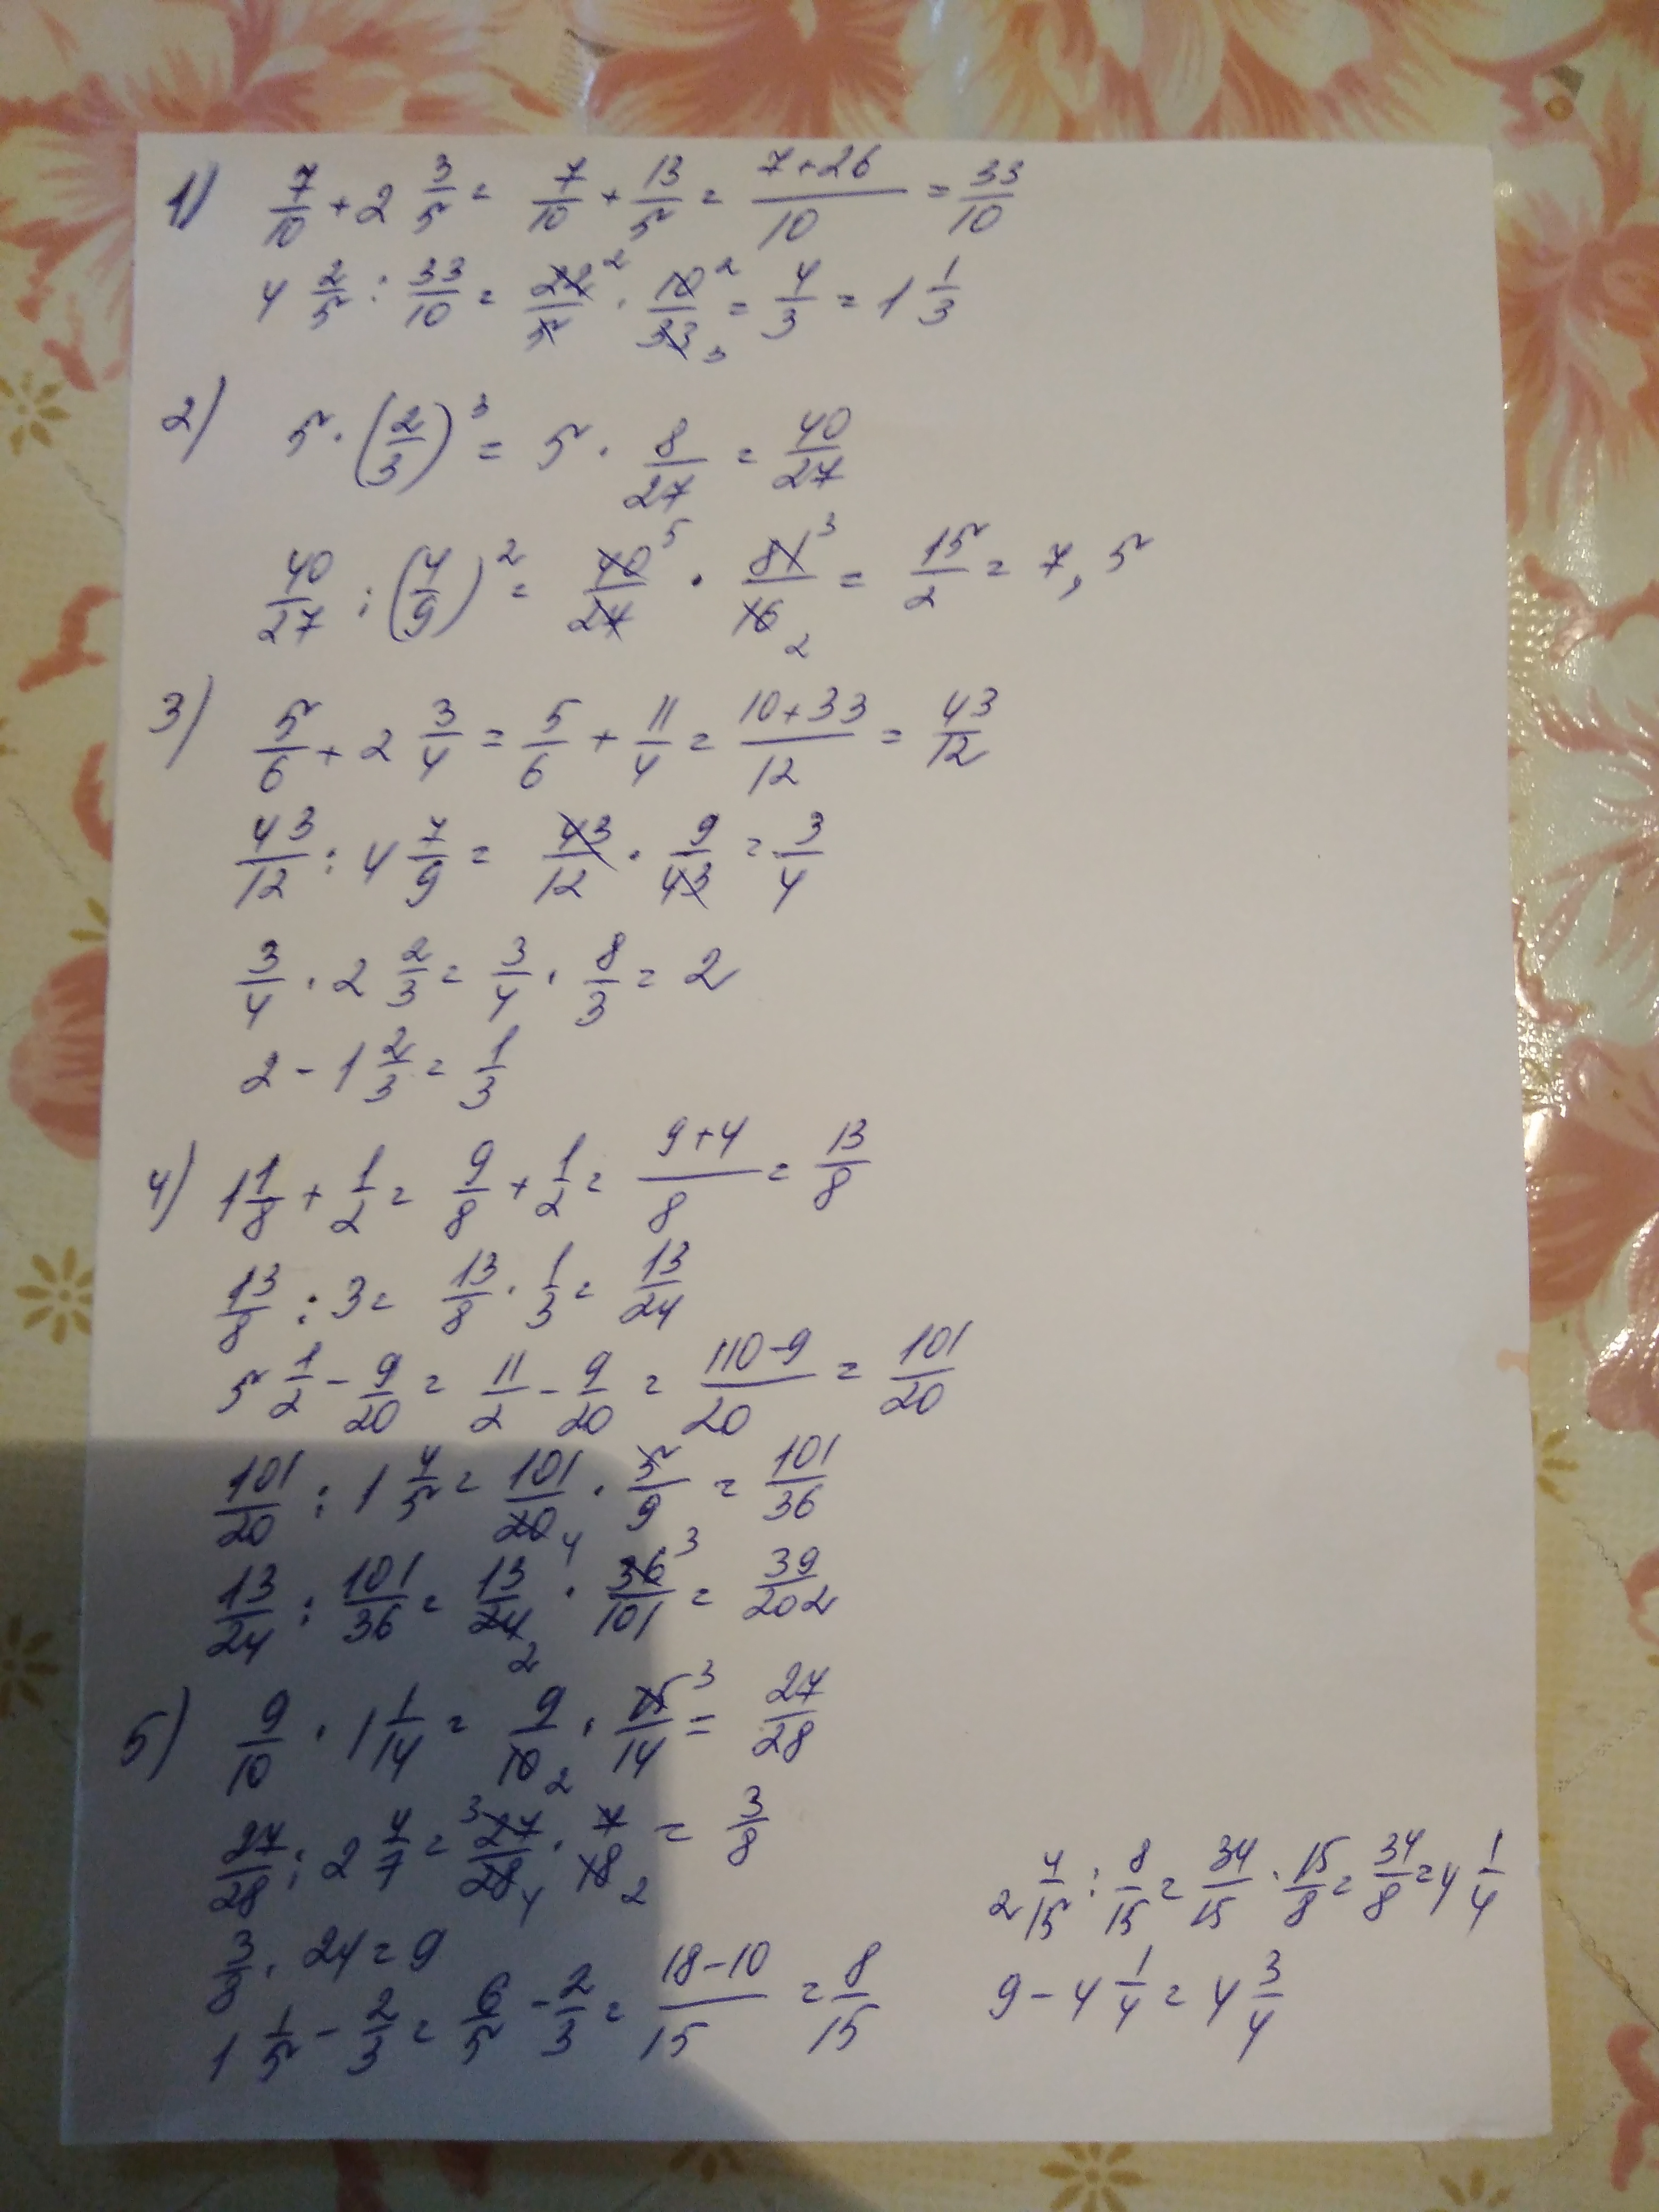 1) 7/10 + 2 3/5 = 7/10 + 13/5 = (7+26)/10 = 33/10
4 2/5 : 33/10 = 22/5 ² · 10/33 ² ₃ = 4/3 = 1 1/3
2) 5 · (2/3)³ = 5 · 8/27 = 40/27
40/27 : (4/9)² = 40/27 ⁵ · 81/16 ³ ₂ = 15/2 = 7,5
3) 5/6 + 2 3/4 = 5/6 + 11/4 = (10+33)/12 = 43/12
43/12 : 4 7/9 = 43/12 · 9/43 = 3/4
3/4 · 2 2/3 = 3/4 · 8/3 = 2
2 - 1 2/3 = 1/3
4) 1 1/8 + 1/2 = 9/8 + 1/2 = (9+4)/8 = 13/8
13/8 : 3 = 13/8 · 1/3 = 13/24
5 1/2 - 9/20 = 11/2 - 9/20 = (110-9)/20 = 101/20
101/20 : 1 4/5 = 101/20 ₄ · 5/9 = 101/36
13/24 : 101/36 = 13/24 ₂ · 36/101 ³ = 39/202
5) 9/10 · 1 1/14 = 9/10 ₂ · 15/14 ³ = 27/28
27/28 : 2 4/7 = ³ 27/28 ₄ · 7/18 ₂ = 3/8
3/8 · 24 = 9
1 1/5 - 2/3 = 6/5 - 2/3 = (18-10)/15 = 8/15
2 4/15 : 8/15 = 34/15 · 15/8 = 34/8 = 4 1/4
9 - 4 1/4 = 4 3/4